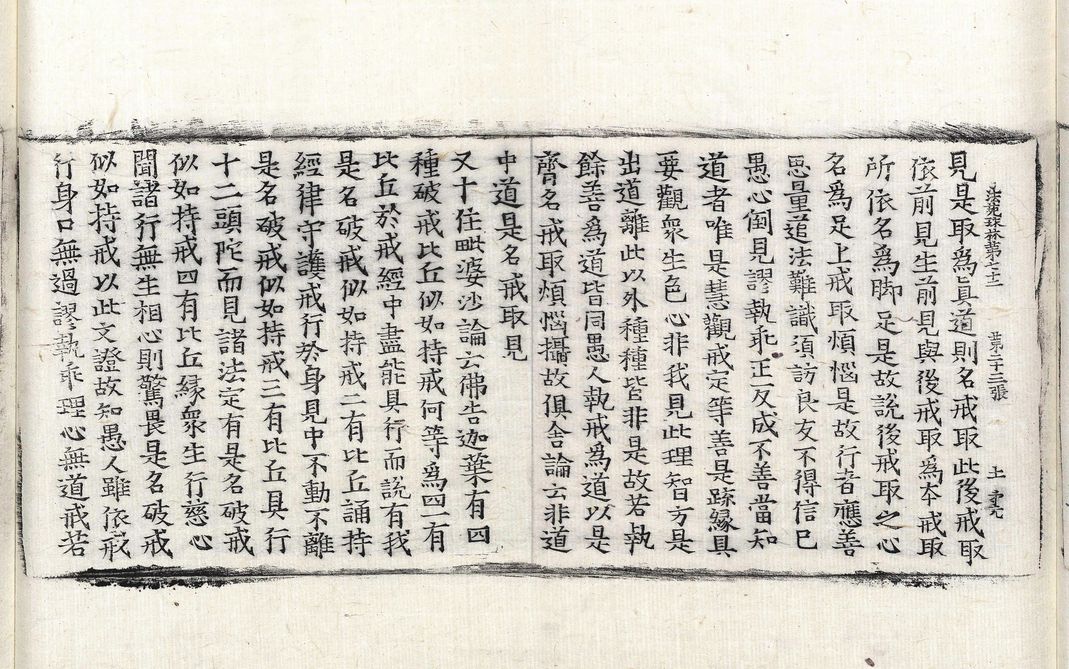 法苑珠林第二十三 第二十二張 土
見是取爲眞道則名戒取此後戒取
依前見生前見與後戒取爲本戒取
所依名爲脚足是故說後戒取之心
名爲足上戒取煩惱是故行者應善
思量道法難識須訪良友不得信已
愚心倒見謬執乖正反成不善當知
道者唯是慧觀戒定等善是疎緣具
要觀衆生色心非我見此理智方是
出道離此以外種種皆非是故若執
餘善爲道皆同愚人執戒爲道以是
齊名戒取煩惱攝故俱舍論云非道
中道是名戒取見
又十住毗婆沙論云佛告迦葉有四
種破戒比丘似如持戒何等爲四一有
比丘於戒經中盡能具行而說有我
是名破戒似如持戒二有比丘誦持
經律守護戒行於身見中不動不離
是名破戒似如持戒三有比丘具行
十二頭陀而見諸法定有是名破戒
似如持戒四有比丘緣衆生行慈心
聞諸行無生相心則驚畏是名破戒
似如持戒以此文證故知愚人雖依戒
行身口無過謬執乖理心無道戒若